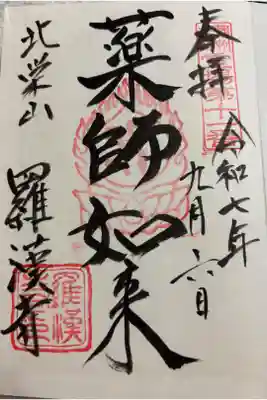 奉拝
令和七年
九月六日
薬師如来
北栄山
羅漢寺
羅漢寺